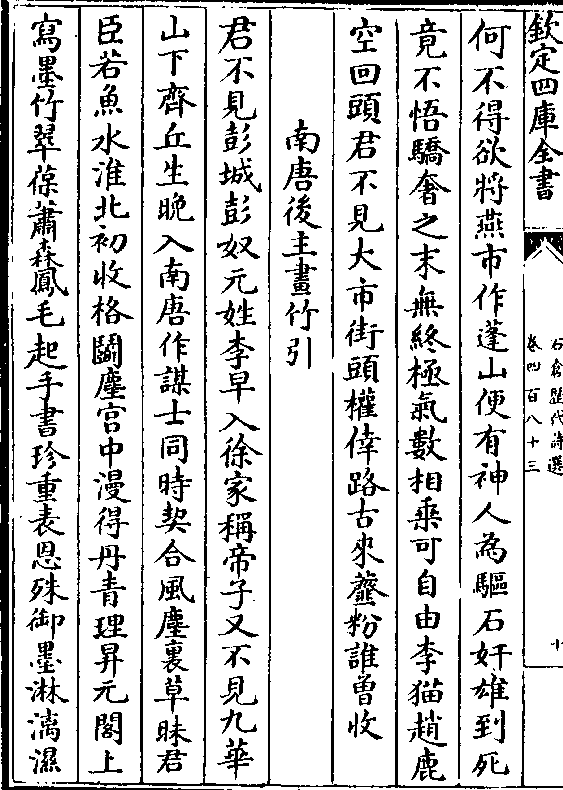 欽定四庫全書
石倉歷代詩選
卷四百八十三
十
何不得欲將燕市作蓬山便有神人為驅石奸雄到死
竟不悟驕奢之末無終極氣數相乘可自由李猫趙鹿
空回頭君不見大市街頭權倖路古來虀粉誰曾收
南唐後主畫竹引
君不見彭城彭奴元姓李早入徐家稱帝子又不見九華
山下齊丘生晚入南唐作謀士同時契合風塵裏草昧君
臣若魚水淮北初收格鬭塵宮中漫得丹青理昇元閣上
寫墨竹翠葆蕭森鳳毛起手書珍重表恩殊御墨淋漓濕